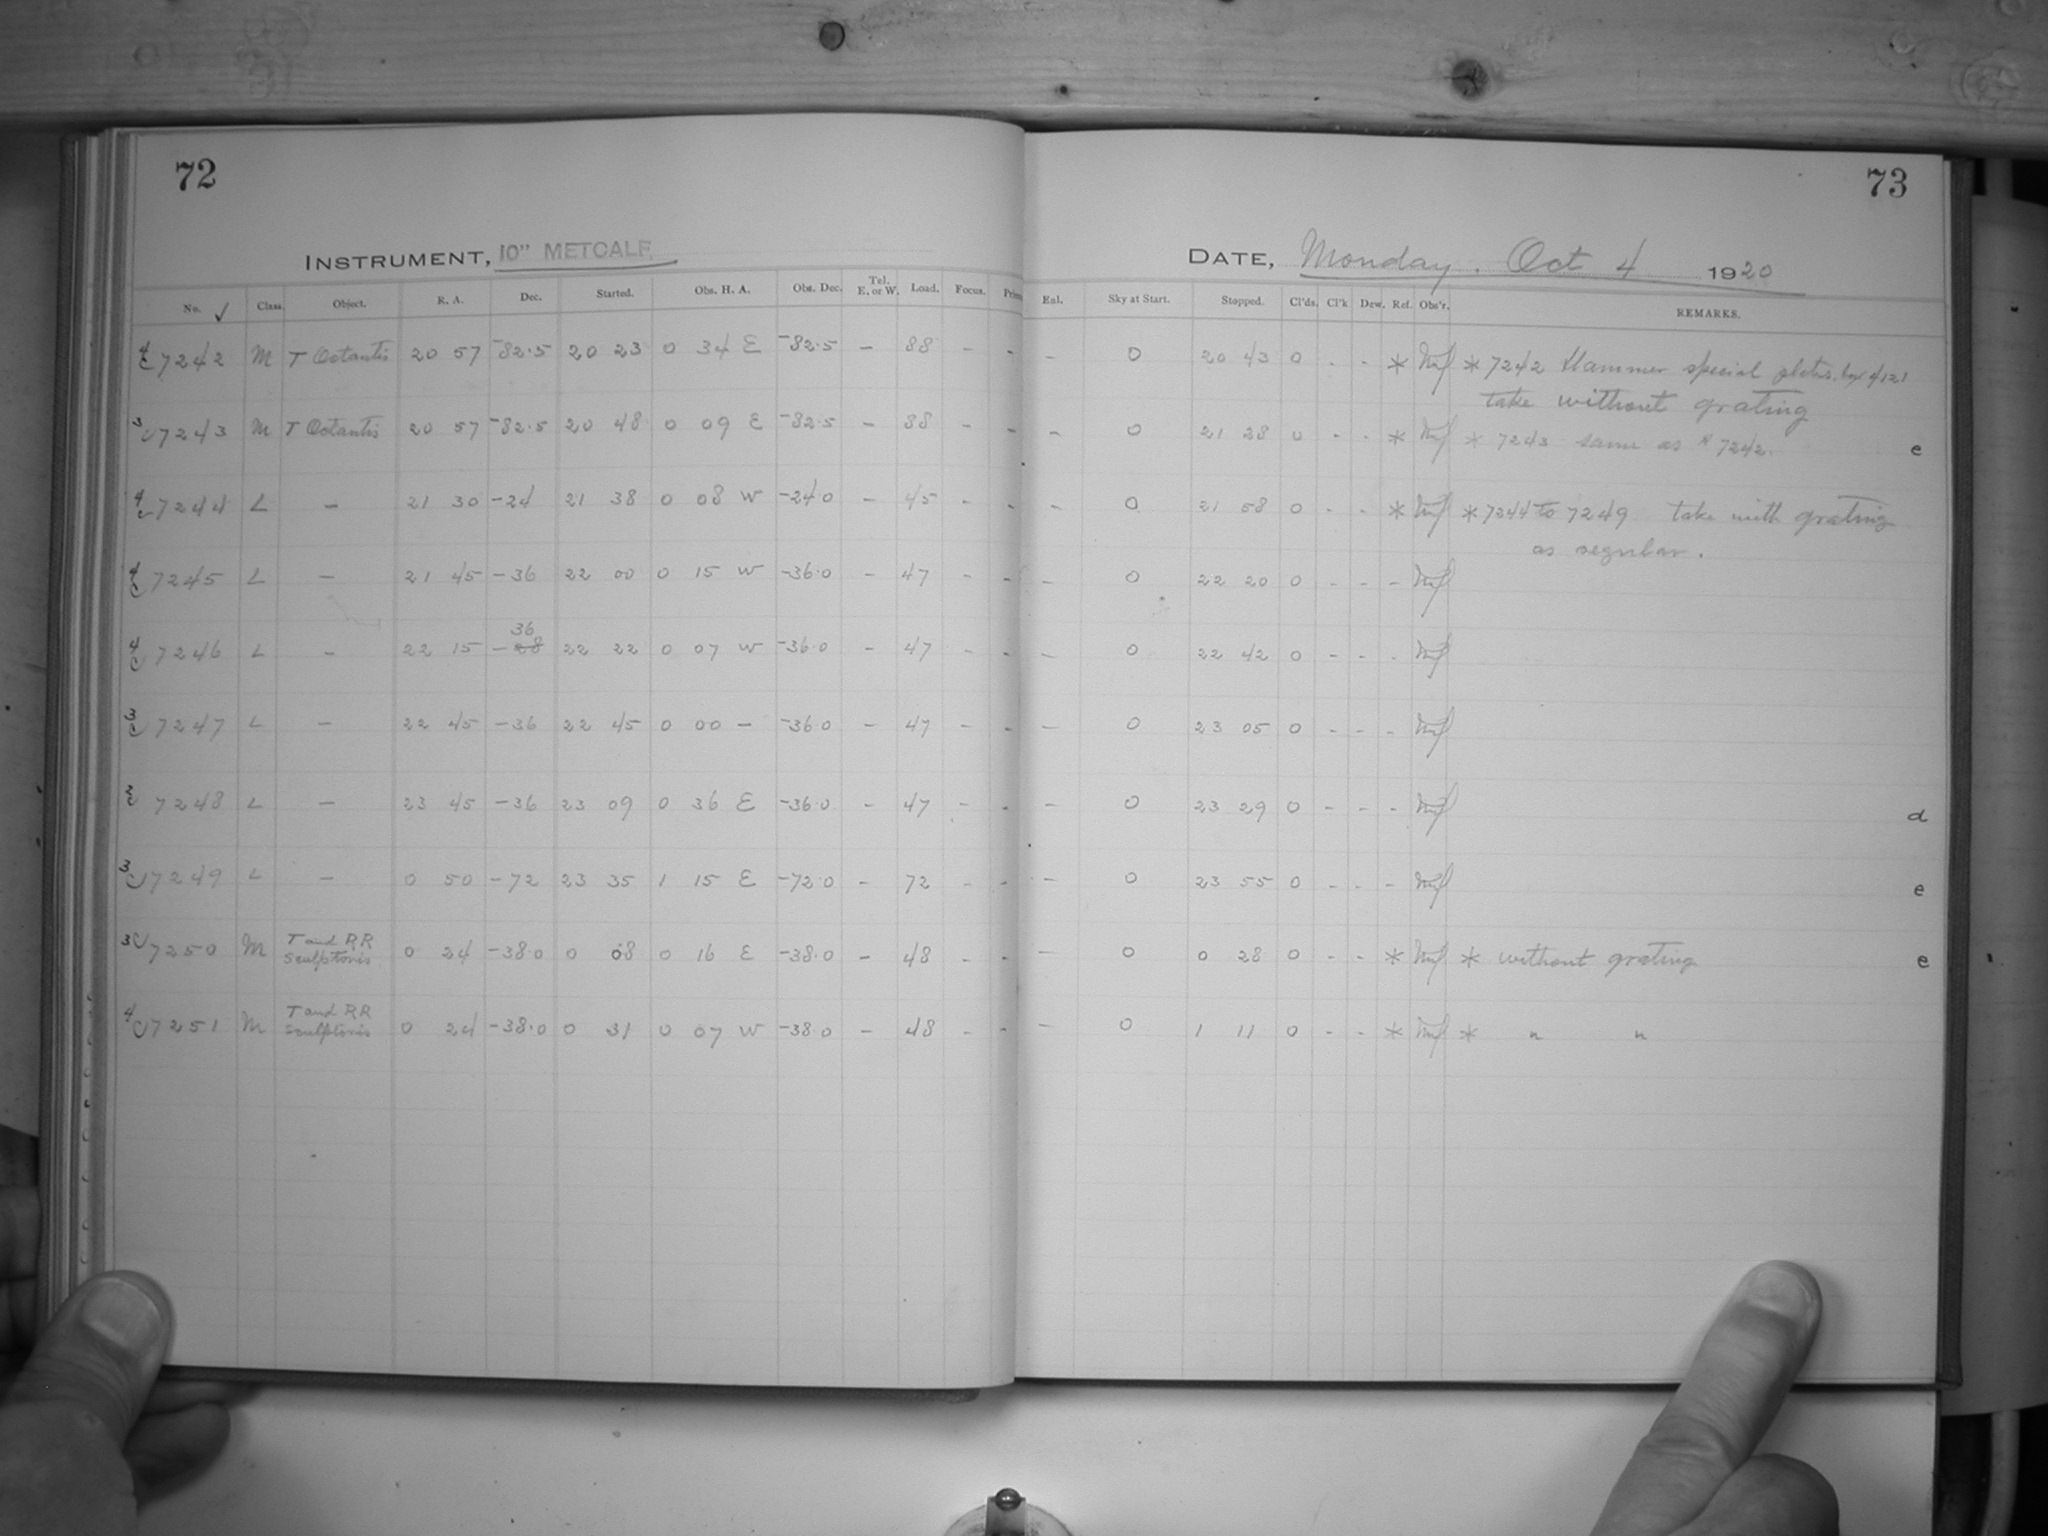 72
73
INSTRUMENT, 10" METCALF
DATE, Monday. Oct 4 1920
No. ✓ Class. Object. R. A. Dec. Started. Obs. H. A. Obs. Dec. Tel. E. or W. Load. Focus. Enl. Sky at Start. Stopped. Cl'ds. Cl'k Dew. Ref. Obs'r. REMARKS.
4 C 7242 M T Octantis 20 57 -82.5 20 23 0 34 E -82.5 - 88 - - - 0 20 43 0 - - * * 7242 Hammer special plates.
take without grating
3 C 7243 M T Octantis 20 57 -82.5 20 48 0 09 E -82.5 - 88 - - - 0 21 28 0 - - * * 7243 same as * 7242. e
4 C 7244 L - 21 30 -24 21 38 0 08 W -24.0 - 45 - - - 0 21 58 0 - - * * 7244 to 7249 take with grating
as regular.
4 C 7245 L - 21 45 -36 22 00 0 15 W -36.0 - 47 - - - 0 22 20 0 - - -
36
4 C 7246 L - 22 15 -28 22 22 0 07 W -36.0 - 47 - - - 0 22 42 0 - - -
3 C 7247 L - 22 45 -36 22 45 0 00 - -36.0 - 47 - - - 0 23 05 0 - - -
2 C 7248 L - 23 45 -36 23 09 0 36 E -36.0 - 47 - - - 0 23 29 0 - - - d
3 C 7249 L - 0 50 -72 23 35 1 15 E -72.0 - 72 - - - 0 23 55 0 - - - e
3 C 7250 M T and RR Sculptoris 0 24 -38.0 0 08 0 16 E -38.0 - 48 - - - 0 0 28 0 - - * * without grating e
4 C 7251 M T and RR Sculptoris 0 24 -38.0 0 31 0 07 W -38.0 - 48 - - - 0 1 11 0 - - * * " "